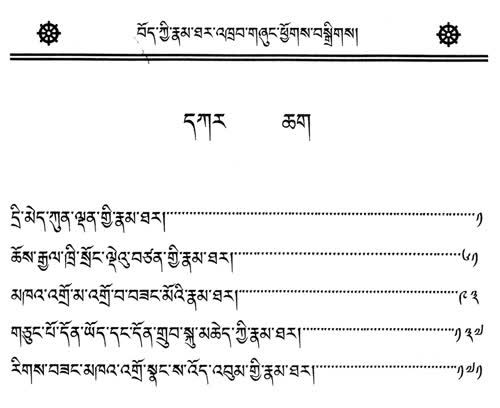 བོད་ཀྱི་རྣམ་ཐར་འཁྲབ་གཞུང་ཕྱོགས་བསྒྲིགས།
དཀར ཆག
དྲི་མེད་ཀུན་ལྡན་གྱི་རྣམ་ཐར།……༡
ཆོས་རྒྱལ་ཁྲི་སྲོང་ལྡེའུ་བཙན་གྱི་རྣམ་ཐར།……༦༡
མཁའ་འགྲོ་མ་འགྲོ་བ་བཟང་མོའི་རྣམ་ཐར།……༩༣
གཅུང་པོ་དོན་ཡོད་དང་དོན་གྲུབ་སྐུ་མཆེད་ཀྱི་རྣམ་ཐར།……༡༣༧
རིགས་བཟང་མཁའ་འགྲོ་སྣང་ས་འོད་འབུམ་གྱི་རྣམ་ཐར།……༡༧༡